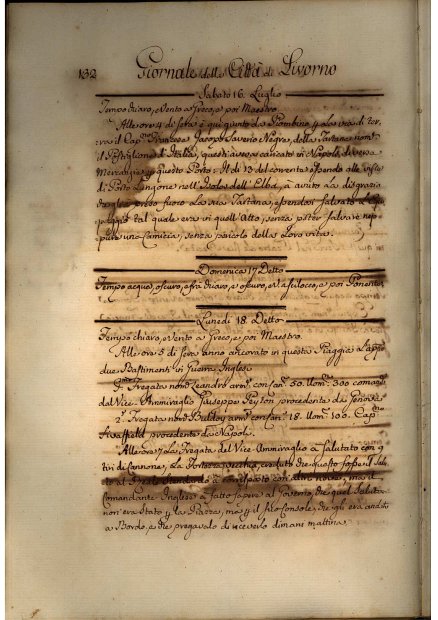 132 Giornale della Città di Livorno
Sabato 16. Luglio
Tempo chiaro, e Vento a Greco, e poi Maestro.
Alle ore 4 di sera è qui giunto da Piombino per la via di ter-
ra il Capno Francese Jacopo Saverio Negre, della Tartana nomta
il Postiglione d'Italia, questi aveva caricato in Napoli diverse
Mercanzie per questo Porto; Il dì 13 del corrente essendo alle viste
di Porto Longone nell'Isola dell'Elba, à avuto la disgrazia
fuoco la sua Tartana, essendosi salvato l'Equi-
paggio tal quale era in quell'Atto, senza poter salvare nep-
pure una Camicia, senza pericolo della Loro vita.
Domenica 17 Detto
Tempo acqua, oscuro, e fra chiaro, e oscuro, Vo a Scilocco, e poi Ponente
Lunedì 18. Detto
Tempo chiaro, e Vento a Greco, e poi Maestro.
Alle ore 5 di sera anno ancorato in questa Spiaggia
due Bastimenti di Guerra Inglesi
Fregata nomta Leandro armta con Canni 50. Uomi 300 comanda
dal Vice-Ammiraglio Giuseppe Peyton procedente da Genova
2a Fregata nomta Bulldog armta con Canni 18. Uomi 100. Capno
procedente da Napoli.
Alle ore 7 La Fregata del Vice-Ammiraglio à salutato con
tiri di Cannone, La Fortezza Vecchia, creduto che questo fosse il Salu-
to al Reale Stendardo à corrisposto con altri nove, ma il
Comandante Inglese à fatto sapere al Governo che quel Saluto
non era stato per la Piazza, ma per il suo Console che gli era andato
a Bordo, e che pregavalo di riceverlo dimani mattina.